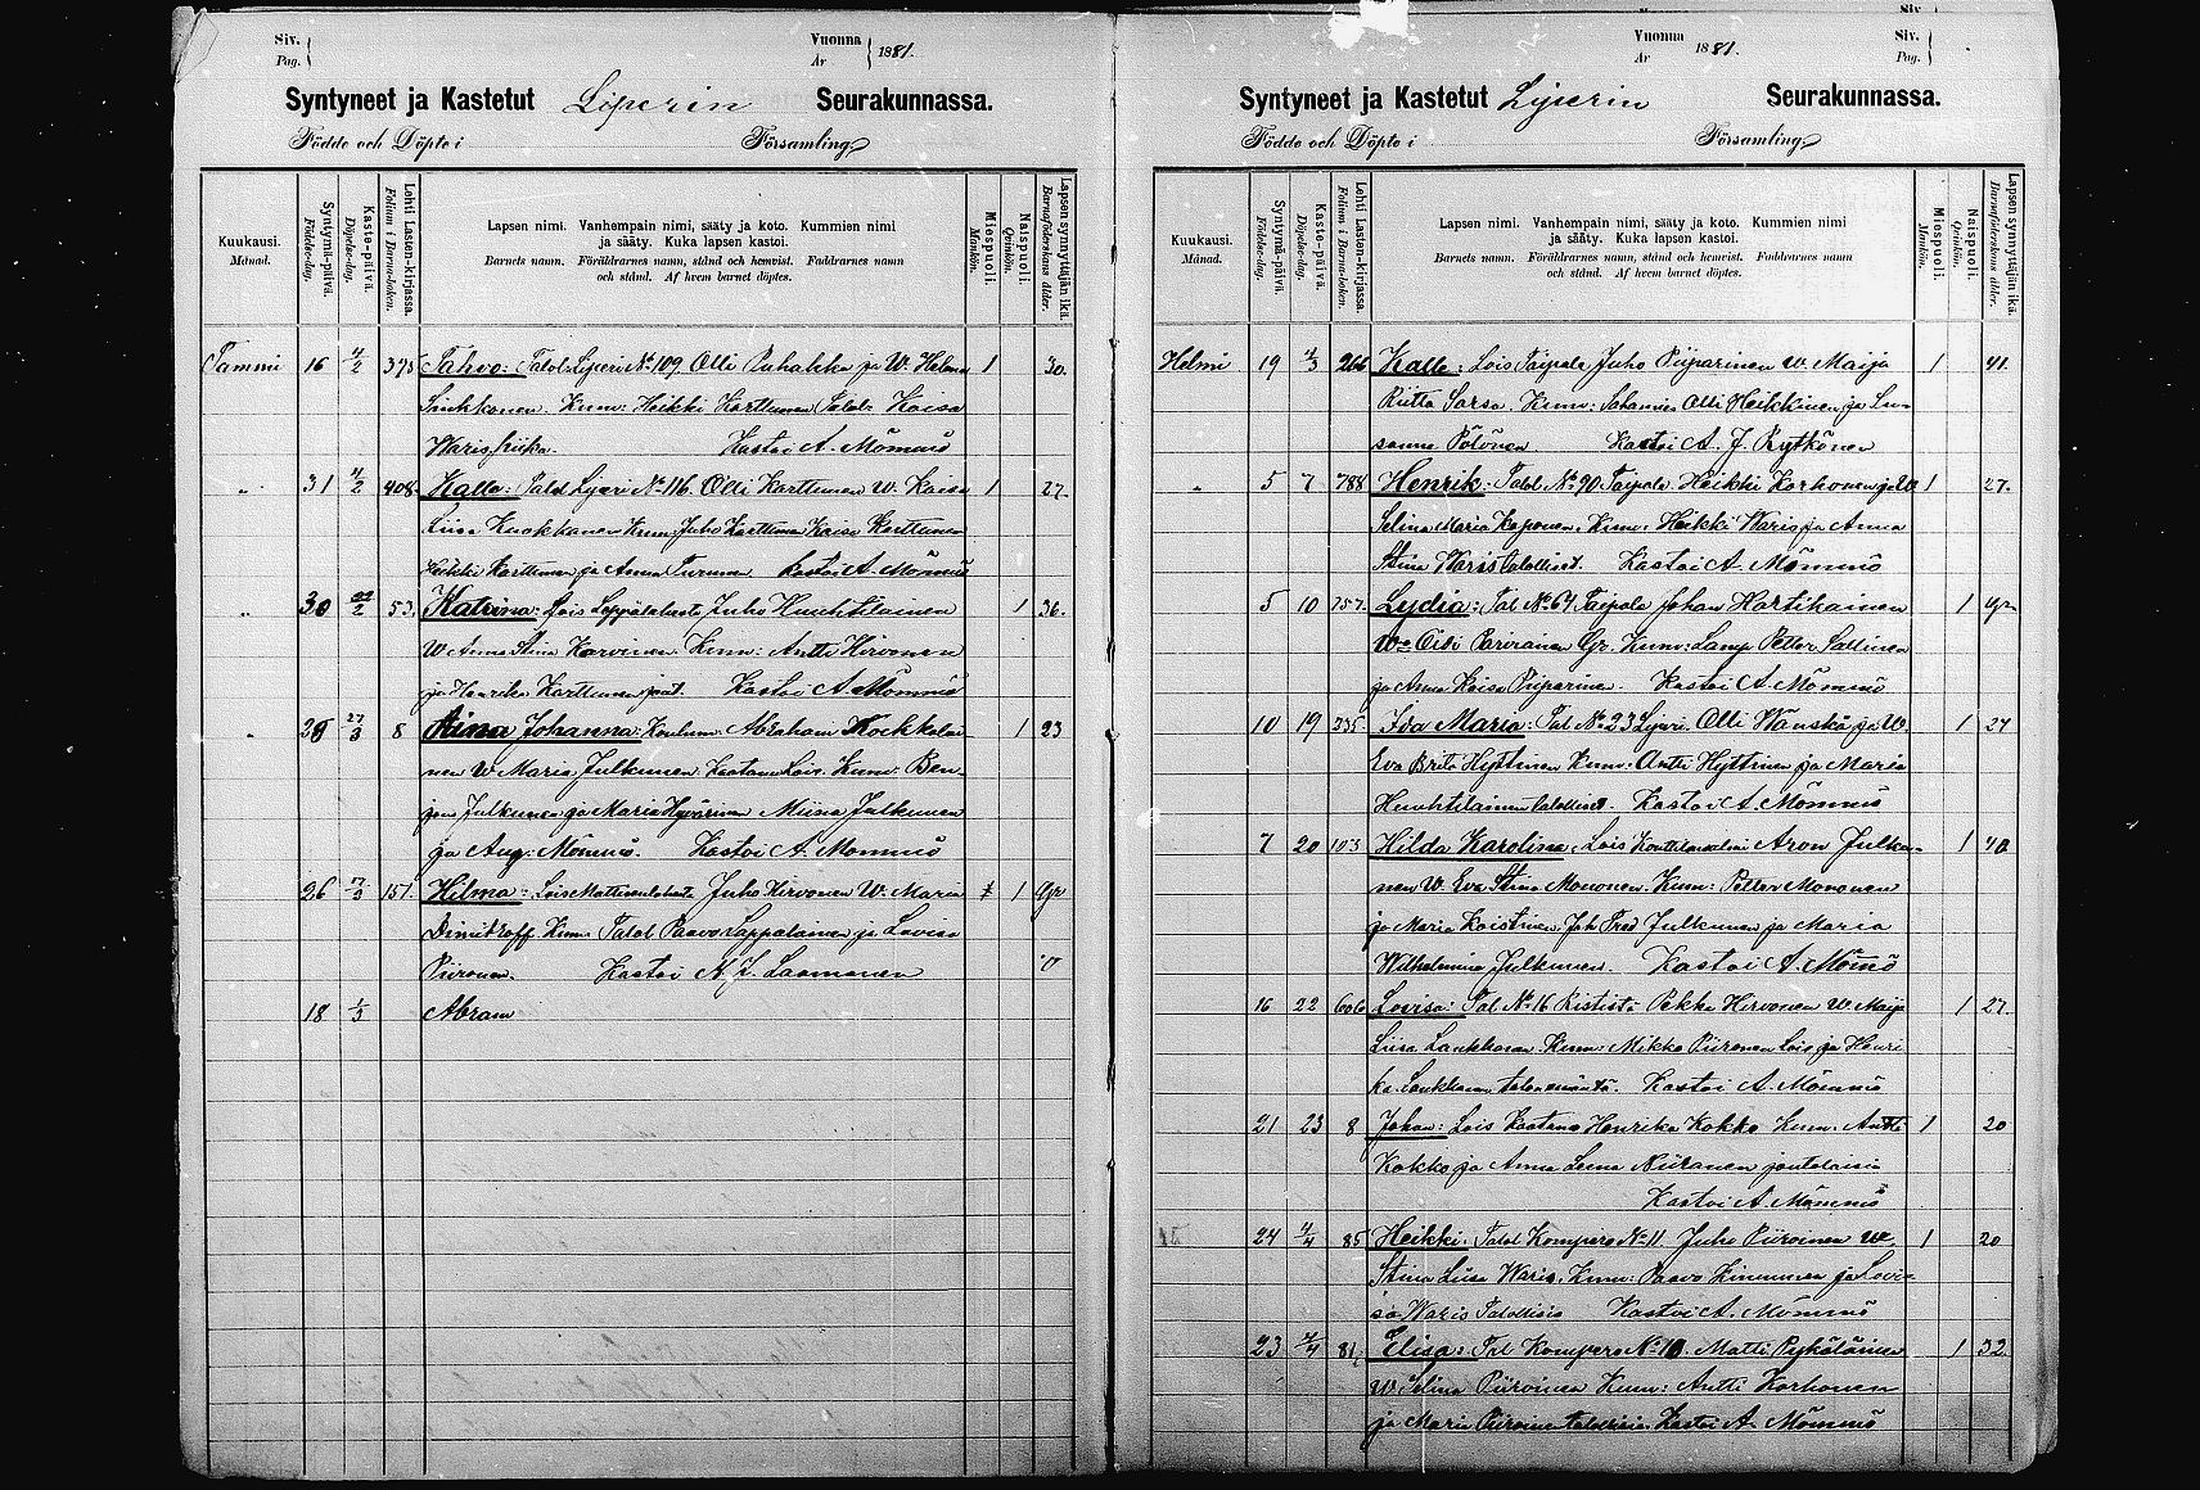 Siv.
Pag.
Vuonna
År
1881.
Syntyneet ja Kastetut Liperin Seurakunnassa.
Födde och Döpte i Församling
Kuukausi.
Månad.
Syntymä-päivä.
Födelse-dag.
Kaste-päivä.
Döpelse-dag.
Lehti Lasten-kirjassa.
Folium i Barna-boken.
Lapsen nimi. Vanhempain nimi, sääty ja koto. Kummien nimi
ja sääty. Kuka lapsen kastoi.
Barnets namn. Föräldrarnes namn, stånd och hemvist. Faddrarnes namn
och stånd. Af hvem barnet döptes.
Miespuoli.
Mankön.
Naispuoli.
Qvinkön.
Lapsen synnyttäjän ikä.
Barnaföderskans ålder.
Tammi 16 4/2 375 Tahvo: Talol. Liperi No 109. Olli Puhakka ja W. Helena 1 30.
Sinkkonen. Kum: Heikki Karttunen Talol. Kaisa
Kastoi A. Mömmö
" 31 4/2 408 Kalle: Talol Liperi No 116. Olli Karttunen W. Kaisa 1 27.
Liisa Kuokkanen Kum: Juho Karttunen Kaisa Karttunen
Heikki Karttunen ja Anna Turunen. Kastoi A. Mömmö
" 30 22/2 53. Katrina: Lois Leppälahti Juho Huuhtilainen 1 36.
W Anna Stina Karvinen. Kum: Antti Hirvonen
ja Henrika Karttunen Kastoi A. Mömmö
" 8 Aina Johanna: Abraham Kokkolai- 1 23
nen W Maria Julkunen Kum: Ben-
jam Julkunen ja Maria Hyvärinen Miina Julkunen
ja Aug: Mömmö. Kastoi A. Mömmö
26 17/3 151. Hilma: Lois Juho Hirvonen W. Maria 1 Gr
Dimitroff. Kum: Talol Paavo Lappalainen ja Lovisa
Piironen. Kastoi Laamanen
18 1/3 Abram
Siv.
Vuonna
År
1881.
Siv.
Pag.
Syntyneet ja Kastetut Liperin Seurakunnassa.
Födde och Döpte i Församling
Kuukausi.
Månad.
Syntymä-päivä.
Födelse-dag.
Kaste-päivä.
Döpelse-dag.
Lehti Lasten-kirjassa.
Folium i Barna-boken.
Lapsen nimi. Vanhempain nimi, sääty ja koto. Kummien nimi
ja sääty. Kuka lapsen kastoi.
Barnets namn. Föräldrarnes namn, stånd och hemvist. Faddrarnes namn
och stånd. Af hvem barnet döptes.
Miespuoli.
Mankön.
Naispuoli.
Qvinkön.
Lapsen synnyttäjän ikä.
Barnaföderskans ålder.
Helmi 19 4/3 266 Kalle: Lois Taipale Juho Piiparinen W. Maija 1 41.
Riitta Sarsa. Kum: Olli Heikkinen ja Su-
sanna Pölönen. Kastoi A. J. Rytkönen
" 5 7 788 Henrik: Talol No 90 Taipale Heikki Korhonen ja W 1 27.
Selina Maria Kaponen. Kum: Heikki Waris ja Anna
Stina Waris talolliset. Kastoi A. Mömmö
5 10 757. Lydia: Tal No 64 Taipale Johan Hartikainen 1 Gr
Parviainen Gr. Kum: Petter Sallinen
ja Anna Kaisa Piiparinen. Kastoi A. Mömmö
10 19 335. Ida Maria: Tal No 23 Liperi. Olli Wänskä ja W. 1 24
Eva Brita Hyttinen Kum: Antti Hyttinen ja Maria
Huuhtilainen talolliset. Kastoi A. Mömmö
7 20 103 Hilda Karolina: Lois Aron Julku- 1 40
nen W. Eva Stina Mononen. Kum: Petter Mononen
ja Maria Koistinen, Joh Fred Julkunen ja Maria
Wilhelmina Julkunen. Kastoi A. Mömmö
16 22 606 Lovisa: Tal No 16 Rististi Pekka Hirvonen W. Maija 1 27.
Liisa Laukkanen. Kum: Mikko Piironen Lois ja Henri
ka Laukkanen talon emäntä. Kastoi A. Mömmö
21 23 8 Johan: Lois Henrika Kokko Kum: Antti 1 20
Kokko ja Anna Leena Niiranen joutolaisia
Kastoi A. Mömmö
24 4/4 85 Heikki: Talol Kompero No 11. Juho Piiroinen W 1 20
Stina Liisa Waris. Kum: Paavo Kinnunen ja Lovi-
sa Waris Talollisia Kastoi A. Mömmö
23 4/4 81 Elisa: Tal Kompero No 10. Matti Pykäläinen 1 32.
W Selina Piiroinen Kum: Antti Korhonen
ja Maria Piiroinen talollisia. Kastoi A. Mömmö